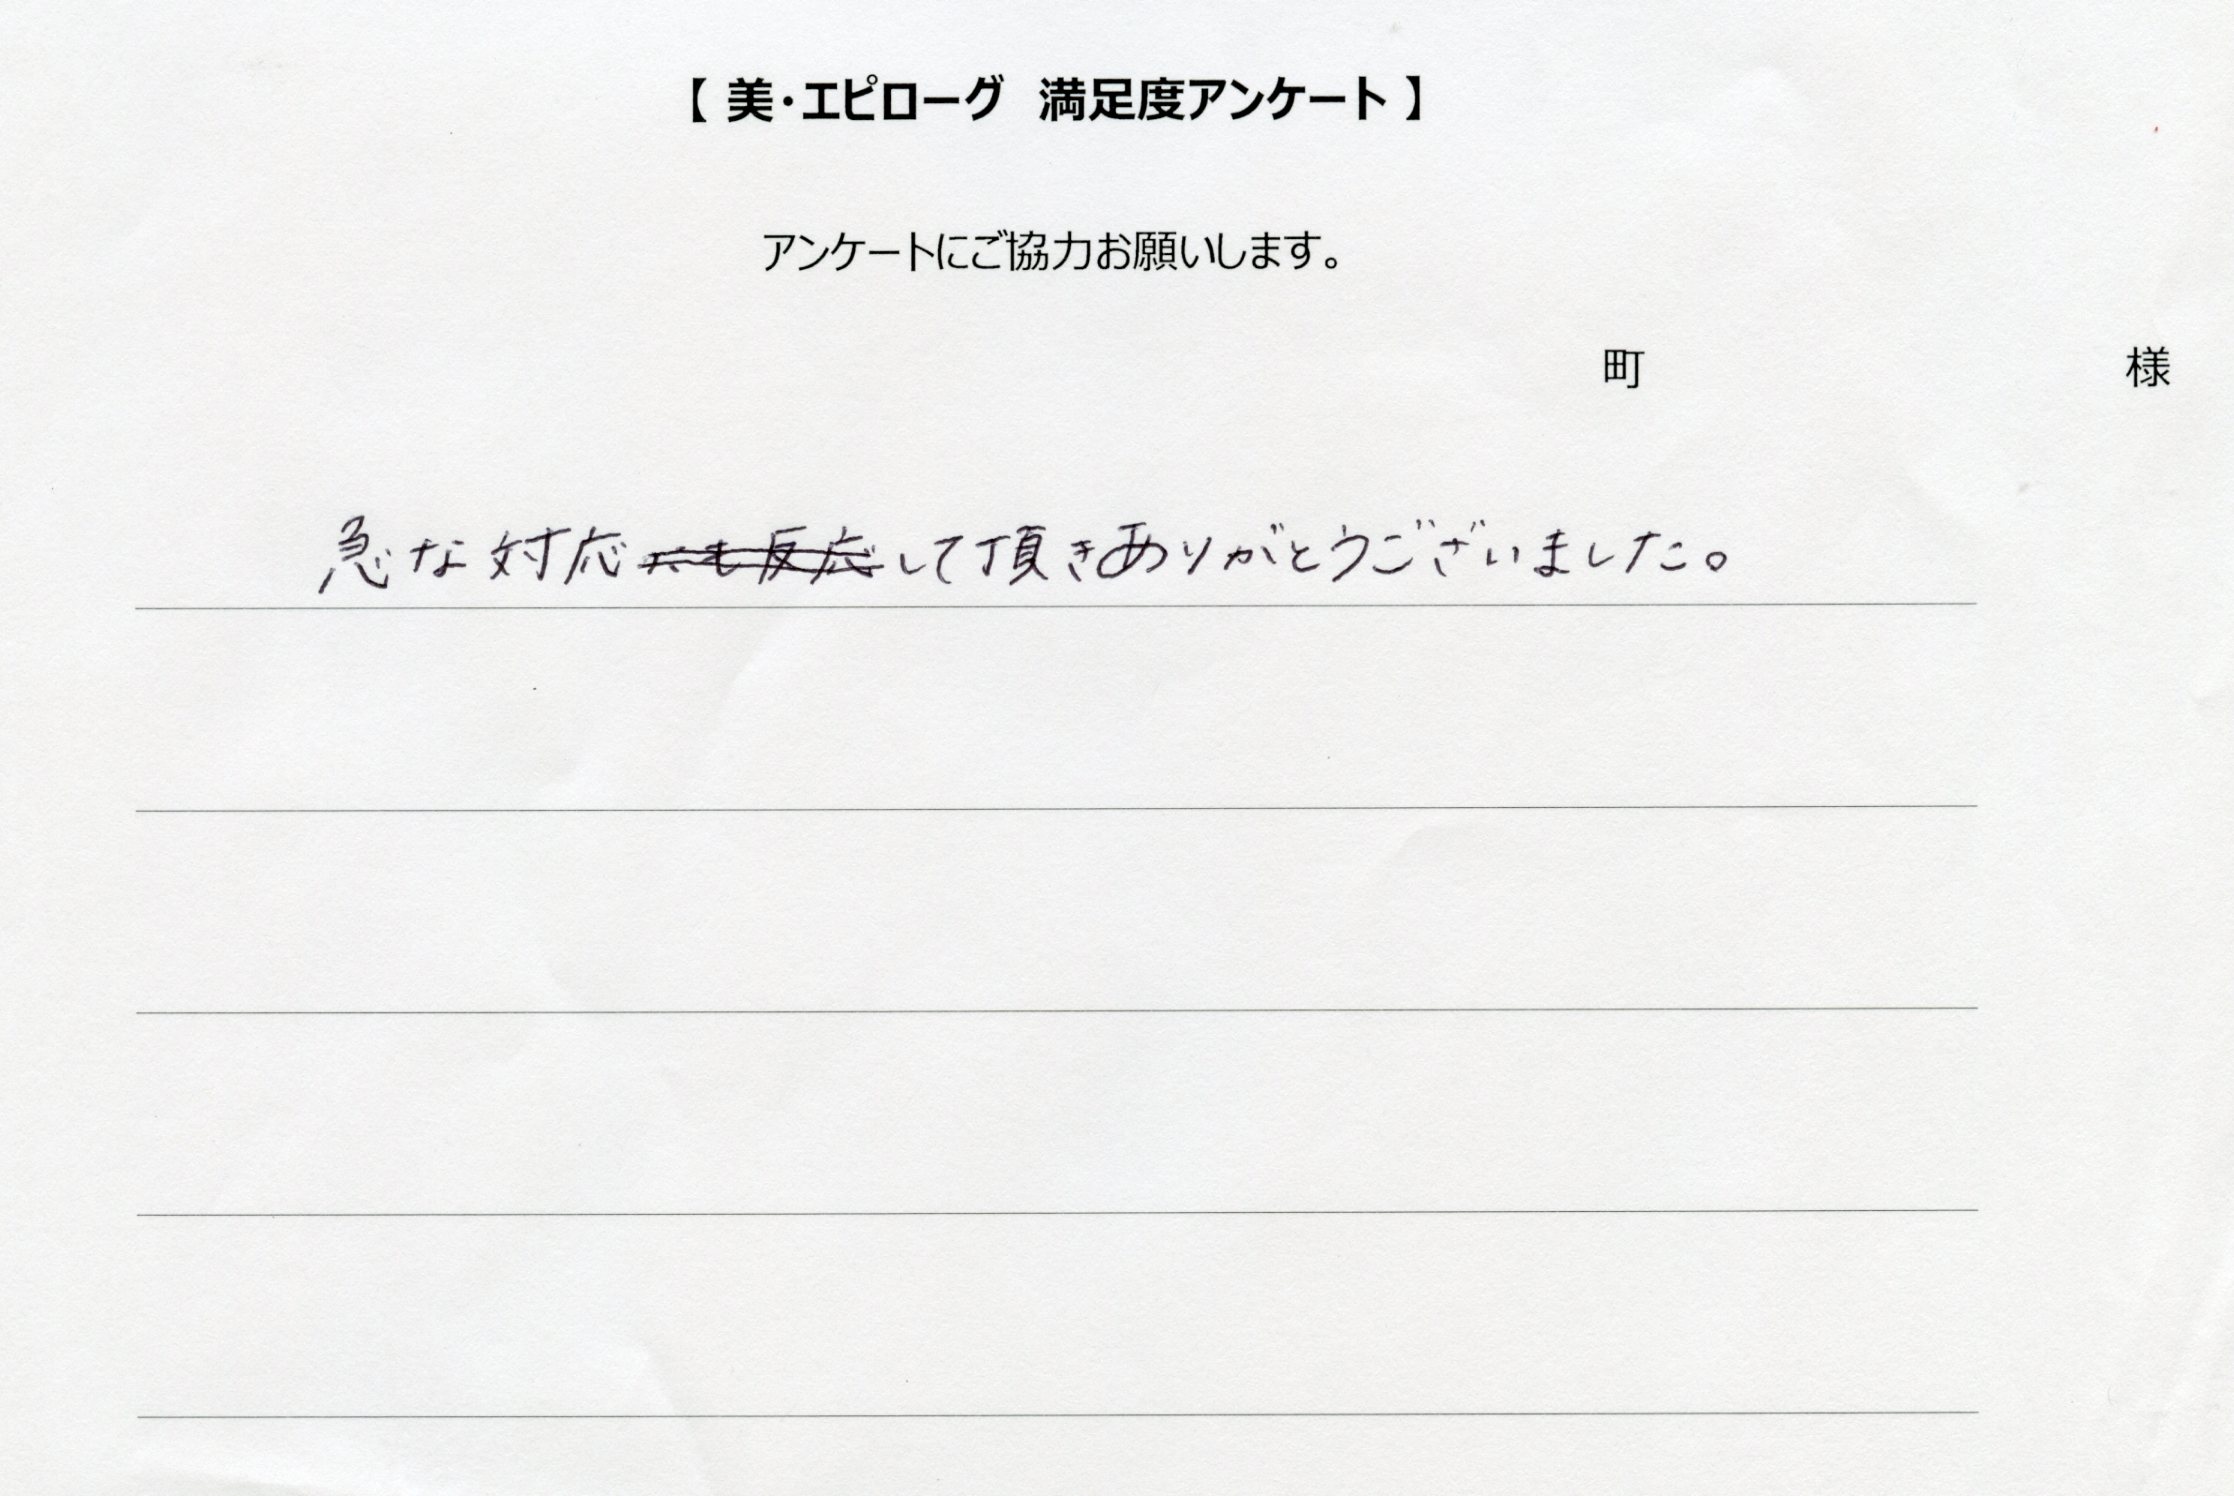 【 美・エピローグ 満足度アンケート 】
アンケートにご協力お願いします。
町 様
急な対応にも反応して頂きありがとうございました。